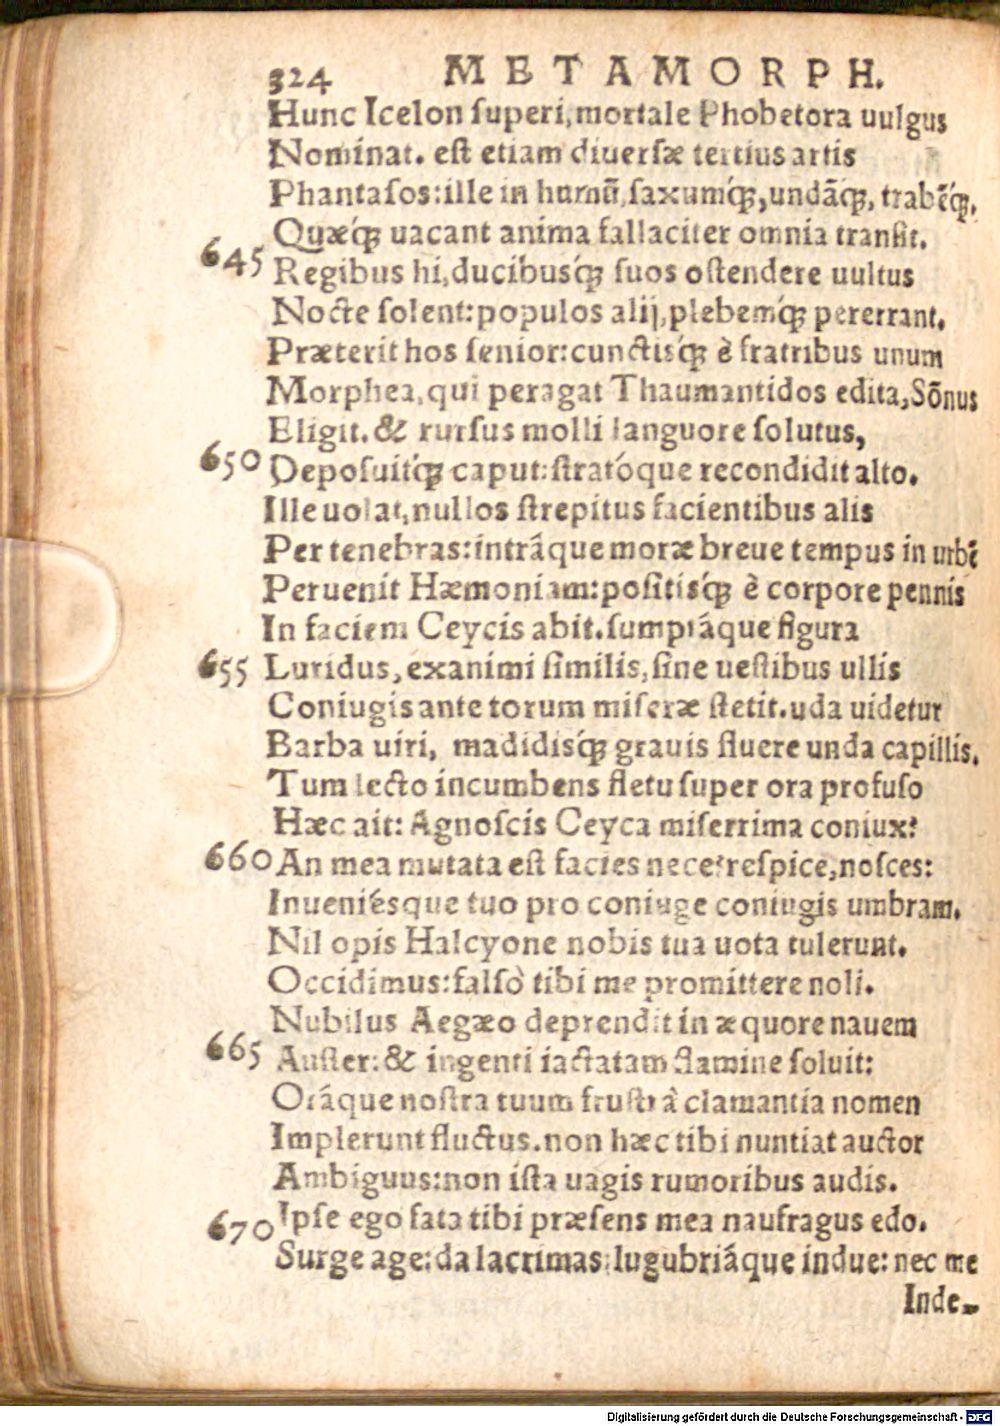 324 METAMORPH.
Hunc Icelon ſuperi, mortale Phobetora uulgus
Nominat. eſt etiam diuerſæ tertius artis
Phantaſos: ille in humū, ſaxumq́;, undāq́;, trabēq́;,
Quæq́; uacant anima fallaciter omnia tranſit.
645 Regibus hi, ducibusq́; ſuos oſtendere uultus
Nocte ſolent: populos alij, plebemq́; pererrant.
Præterit hos ſenior: cunctisq́; è fratribus unum
Morphea, qui peragat Thaumantidos edita, Sōnus
Eligit. & rurſus molli languore ſolutus,
650 Depoſuitq́; caput: ſtratóque recondidit alto.
Ille uolat, nullos ſtrepitus facientibus alis
Per tenebras: intráque moræ breue tempus in urbē
Peruenit Hæmoniam: poſitisq́; è corpore pennis
In faciem Ceycis abit. ſumptáque figura
655 Luridus, exanimi ſimilis, ſine ueſtibus ullis
Coniugis ante torum miſeræ ſtetit. uda uidetur
Barba uiri, madidisq́; grauis fluere unda capillis.
Tum lecto incumbens fletu ſuper ora profuſo
Hæc ait: Agnoſcis Ceyca miſerrima coniux?
660 An mea mutata eſt facies nece? reſpice, noſces:
Inueniésque tuo pro coniuge coniugis umbram.
Nil opis Halcyone nobis tua uota tulerunt.
Occidimus: falſò tibi me promittere noli.
Nubilus Aegæo deprendit in æquore nauem
665 Auſter: & ingenti iactatam flamine ſoluit:
Oráque noſtra tuum fruſtrà clamantia nomen
Implerunt fluctus. non hæc tibi nuntiat auctor
Ambiguus: non iſta uagis rumoribus audis.
670 Ipſe ego fata tibi præſens mea naufragus edo.
Surge age: da lacrimas, lugubriáque indue: nec me
Inde-
Digitalisierung gefördert durch die Deutsche Forschungsgemeinschaft - DFG